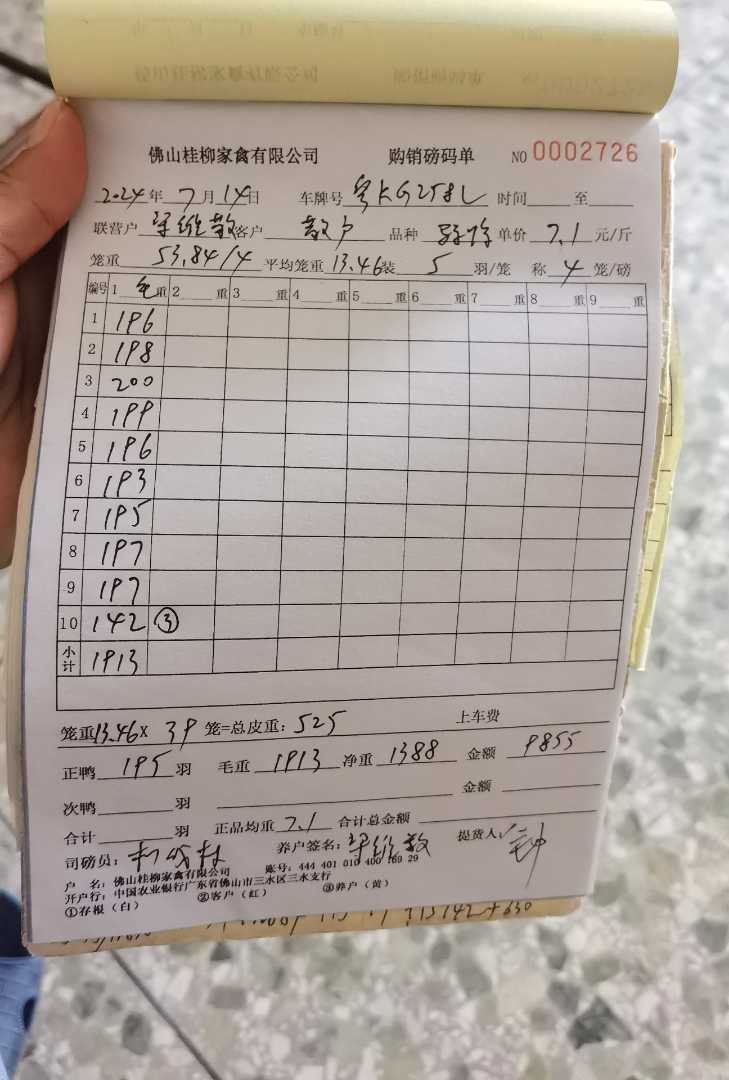 佛山桂柳家禽有限公司 购销磅码单 NO 0002726
2024年 7月 14日 车牌号 粤KG258L 时间 至
联营户 梁维敬 客户 散户 品种 单价 7.1 元/斤
笼重 53.84/4 平均笼重 13.46 装 5 羽/笼 称 4 笼/磅
编号 1 毛重 2 重 3 重 4 重 5 重 6 重 7 重 8 重 9 重
1 196
2 198
3 200
4 199
5 196
6 193
7 195
8 197
9 197
10 142 ③
小计 1913
笼重13.46X 39 笼=总皮重: 525 上车费
正鸭 195 羽 毛重 1913 净重 1388 金额 9855
次鸭 羽 金额
合计 羽 正品均重 7.1 合计总金额
司磅员: 养户签名: 梁维敬 提货人:
户 名: 佛山桂柳家禽有限公司 账号: 444 401 010 400 169 29
开户行: 中国农业银行广东省佛山市三水区三水支行
①存根（白） ②客户（红） ③养户（黄）